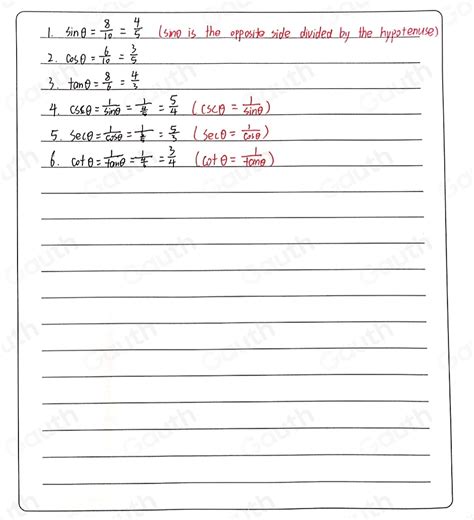 1. sinθ = 8/10 = 4/5 (sinθ is the opposite side divided by the hypotenuse)
2. cosθ = 6/10 = 3/5
3. tanθ = 8/6 = 4/3
4. cscθ = 1/sinθ = 1/(4/5) = 5/4 (cscθ = 1/sinθ)
5. secθ = 1/cosθ = 1/(3/5) = 5/3 (secθ = 1/cosθ)
6. cotθ = 1/tanθ = 1/(4/3) = 3/4 (cotθ = 1/tanθ)
Gauth